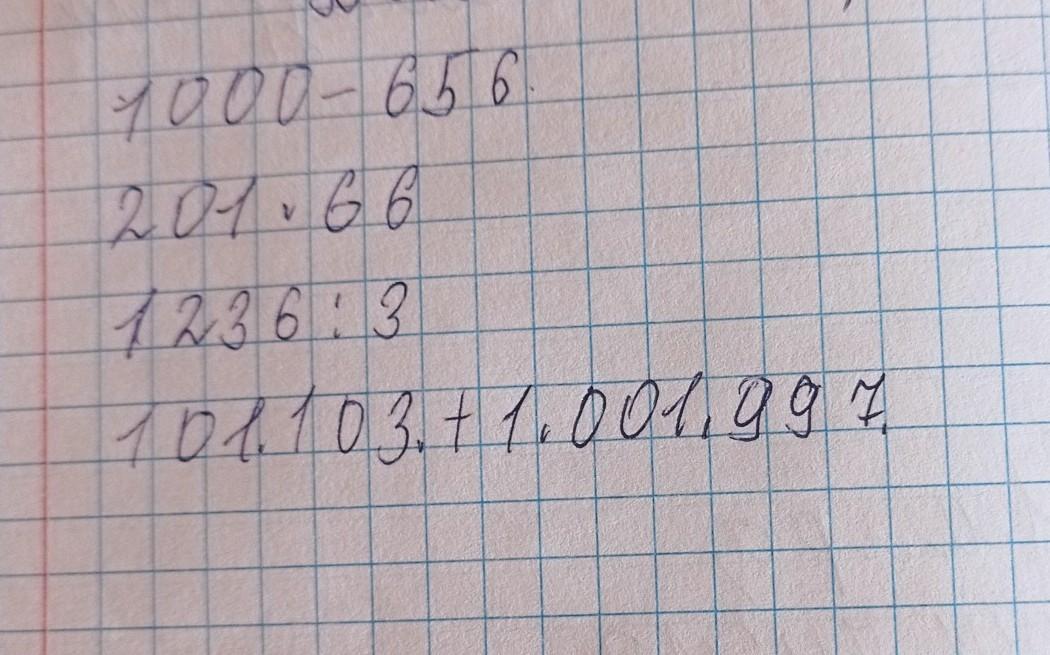 1000-656.
201·66
1236:3
101.103.+1.001.997.